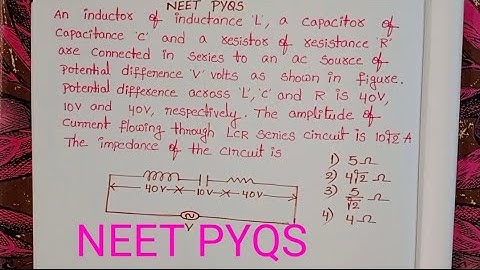 NEET PYQS
An inductor of inductance 'L', a capacitor of
capacitance 'C' and a resistor of resistance 'R'
are connected in series to an ac source of
potential difference 'V' volts as shown in figure.
Potential difference across 'L', 'C' and R is 40V,
10V and 40V, respectively. The amplitude of
current flowing through LCR series circuit is 10√2 A
The impedance of the circuit is
1) 5 Ω
2) 4√2 Ω
3) 5/√2 Ω
4) 4 Ω
40V 10V 40V
V
NEET PYQS